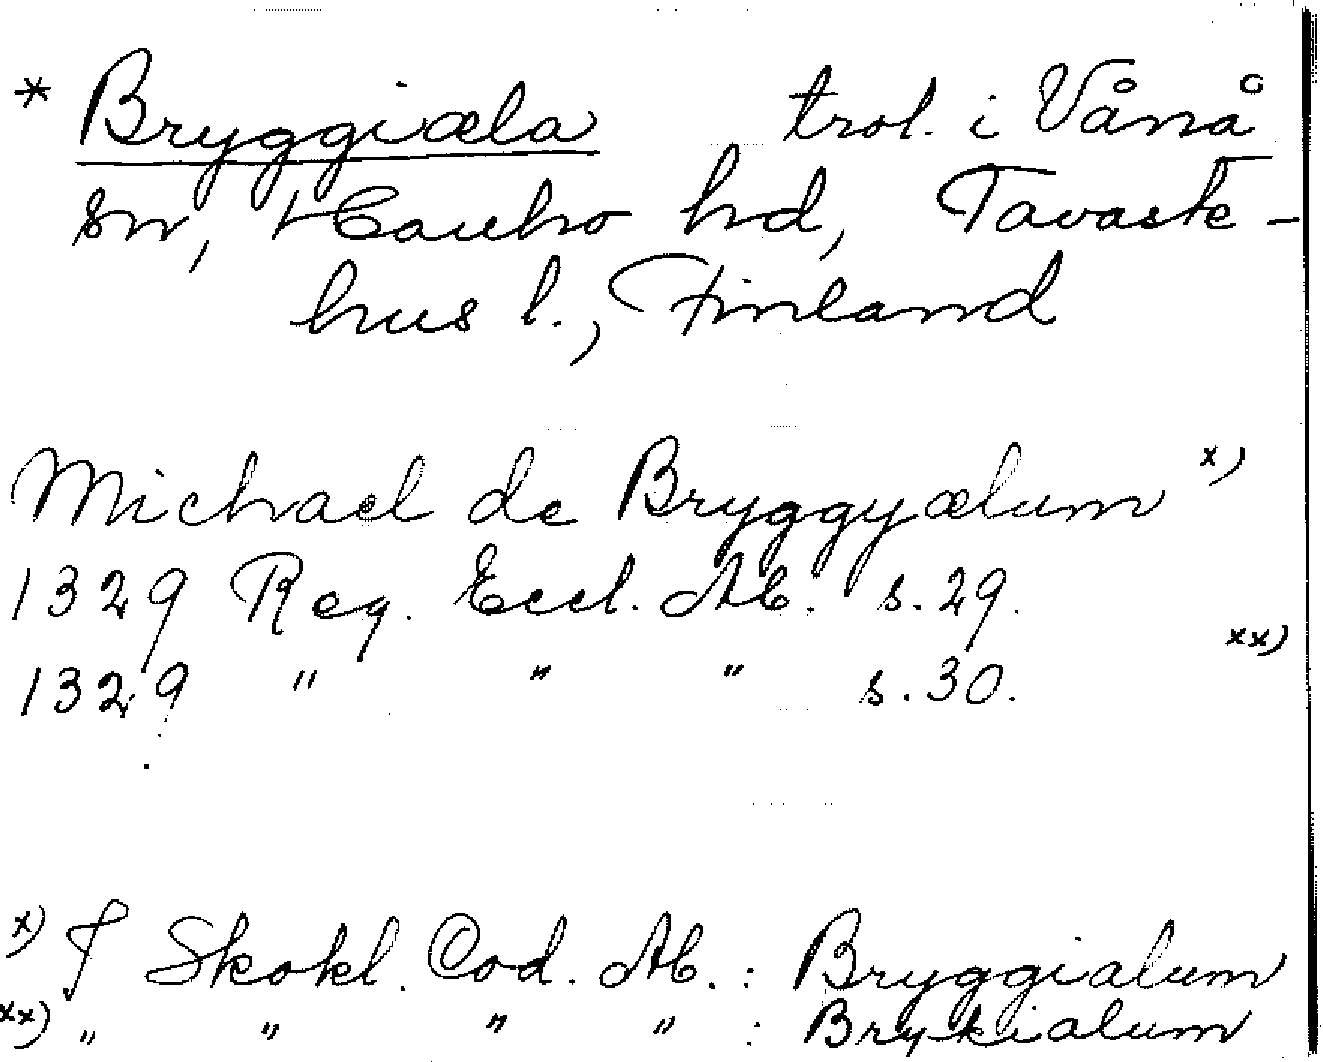 * Bryggiæla trol. i Vånå
sn, Hauho hd, Tavaste-
hus l., Finland
Michael de Bryggyælum x)
1329 Reg. Eccl. Ab. s.29.
1329 " " " s.30. xx)
x) I Skokl. Cod. Ab. : Bryggialum
xx) " " " " : Brykialum